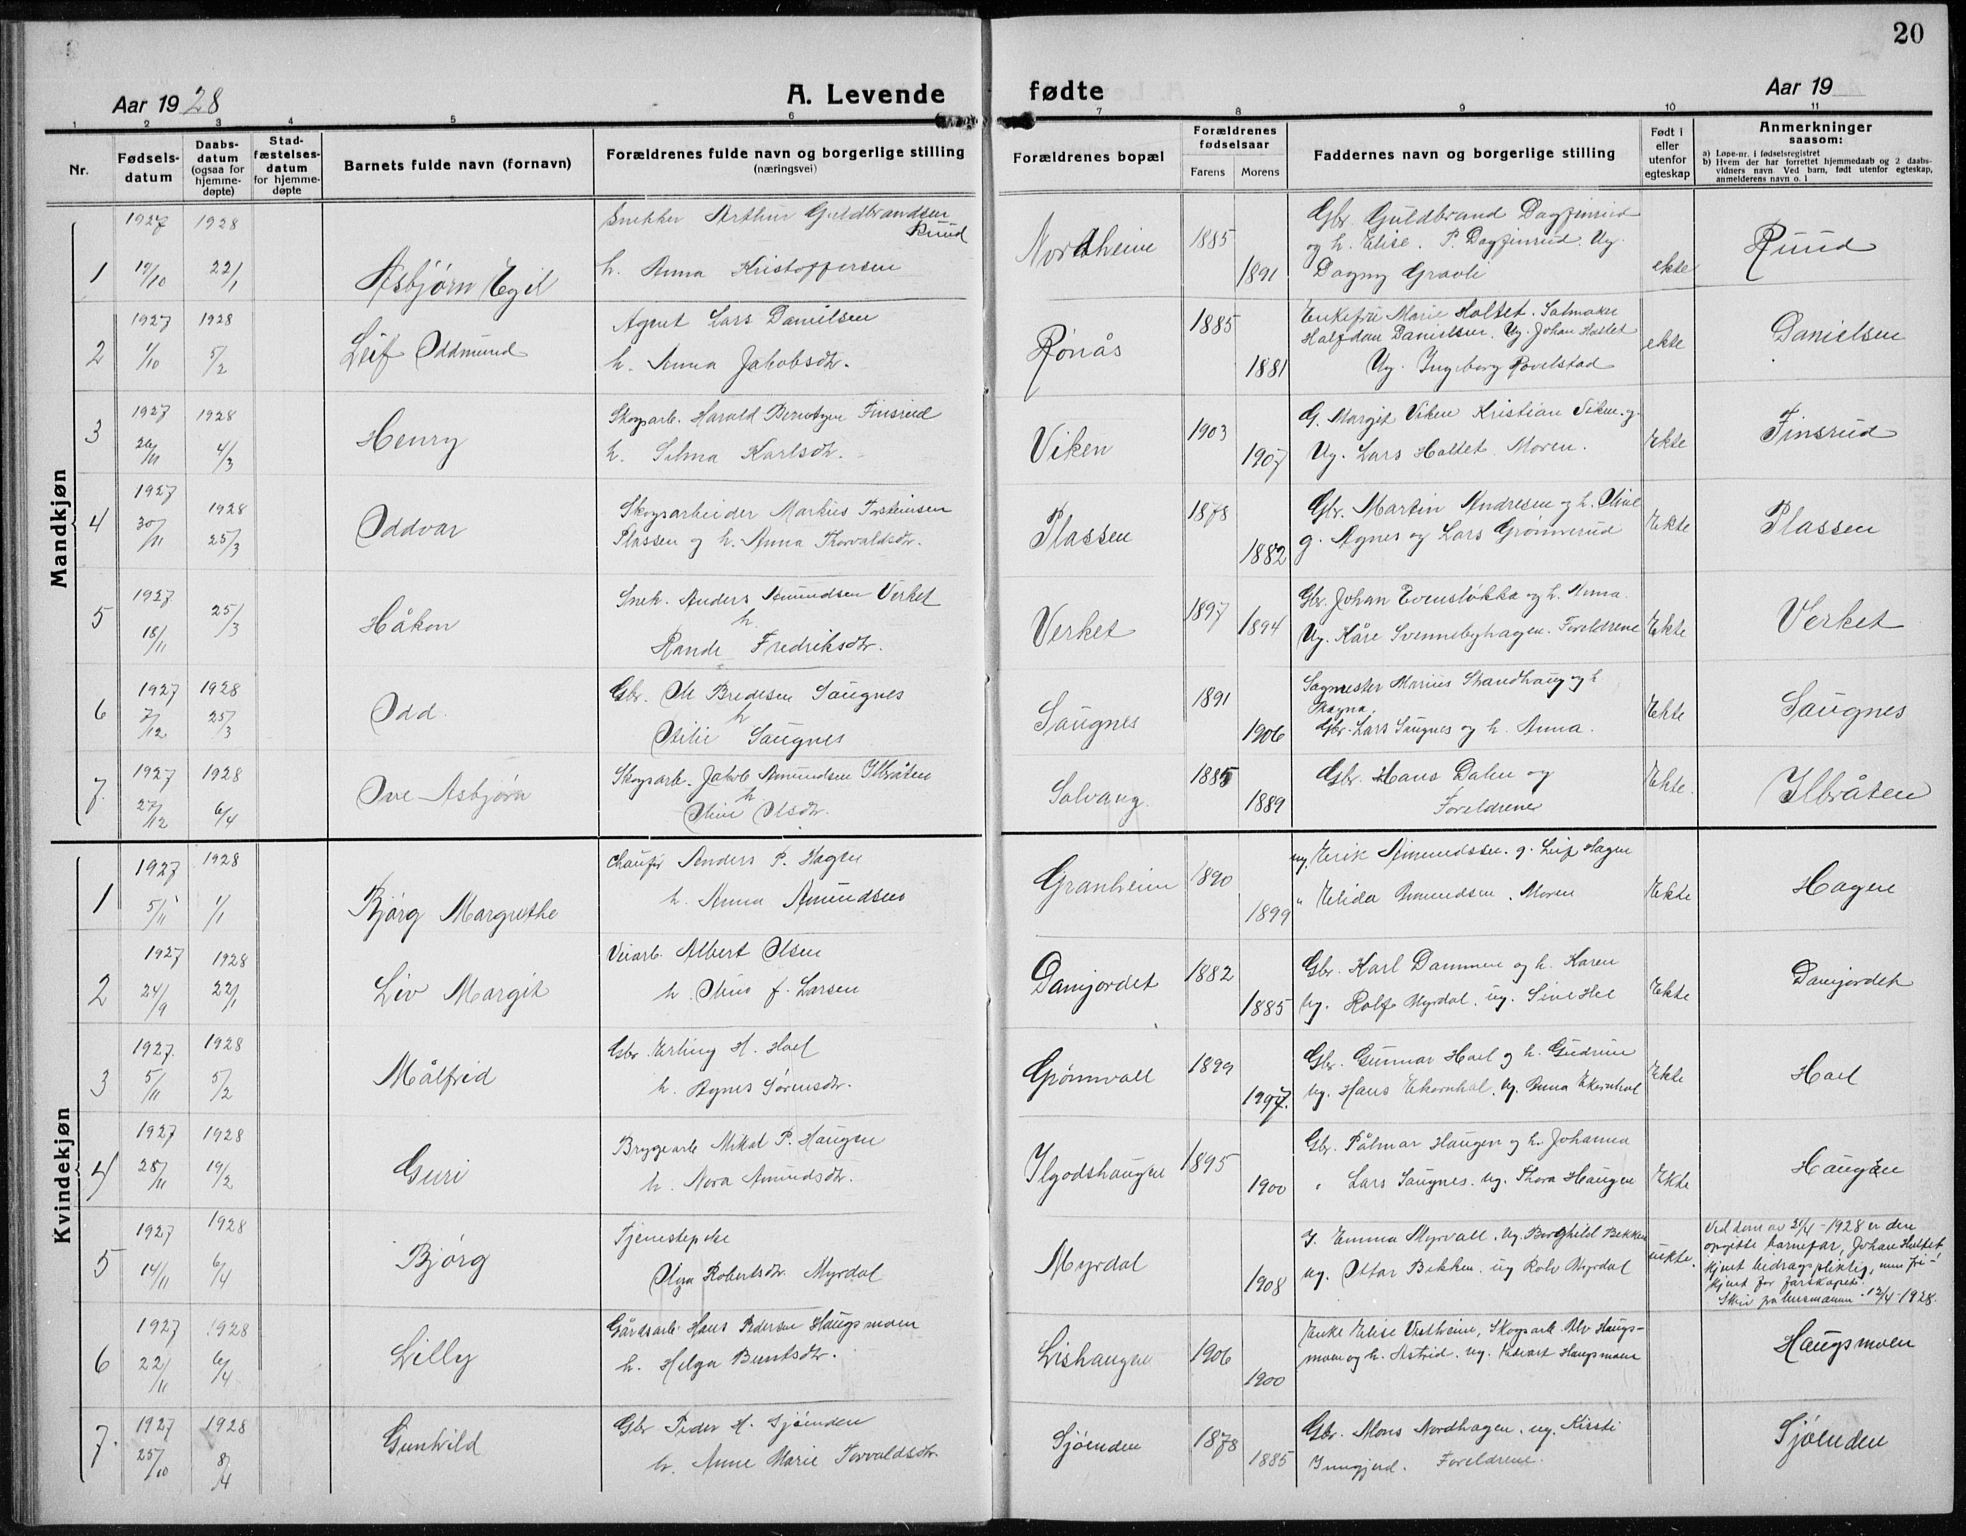 20
Aar 1928
A. Levende
fødte
Aar 19
1 2 3 4 5 6 7 8 9 10 11
Nr.
Fødsels-
datum
Daabs-
datum
(ogsaa for
hjemme-
døpte)
Stad-
fæstelses-
datum
for hjemme-
døpte
Barnets fulde navn (fornavn)
Forældrenes fulde navn og borgerlige stilling
(næringsvei)
Forældrenes bopæl
Forældrenes
fødselsaar
Farens Morens
Faddernes navn og borgerlige stilling
Født i
eller
utenfor
egteskap
Anmerkninger
saasom:
a) Løpe-nr. i fødselsregistret
b) Hvem der har forrettet hjemmedaab og 2 daabs-
vidners navn Ved barn, født utenfor egteskap,
anmelderens navn o. l
Mandkjøn
1927 1928 Snekker Arthur Guldbrandsen Ruud
1 19/10 22/1 Asbjørn Egil h. Anna Kristoffersen
Nordheim 1885 1891
Gbr. Guldbrand Dagfinrud
og h. Elise. P. Dagfinrud. Ug.
Dagny Gravli
ekte Ruud
1927 1928 Agent Lars Danielsen
2 1/10 5/2 Leif Oddmund h. Anna Jakobsdtr.
Rønås 1885 1881
Enkefru Marie Holtet. Salmaker
Halfdan Danielsen. Ug. Johan Holtet
Ug. Ingeborg Røvelstad
ekte Danielsen
1927 1928 Skogsarb. Harald Berntsen Finsrud
3 26/11 4/3 Henry h. Selma Karlsdtr.
Viken 1903 1907
G. Margit Viken Kristian Viken. g.
Ug. Lars Holtet. Moren.
Ekte Finsrud
1927 1928 Skogsarbeider Markus Torsteinsen
4 30/11 25/3 Oddvar Plassen og h. Anna Thorvaldsdtr.
Plassen 1878 1882
Gbr. Martin Andresen og h. Oline
g. Agnes og Lars Grønnerud
Ekte Plassen
1927 Snek. Anders Amundsen Verket
5 18/11 25/3 Håkon h. Rande Fredriksdtr.
Verket 1897 1894
Gbr. Johan Evensløkka og h. Anna.
Ug. Kåre Svennebyhagen. Foreldrene
Ekte Verket
1927 1928 Gbr. Ole Bredesen Saugnes
6 7/12 25/3 Odd. h. Otilie Saugnes
Saugnes 1891 1906
Sagmester Marius Strandhaug og h
Magna.
Gbr. Lars Saugnes og h. Anna.
Ekte Saugnes
1927 1928 Skogsarb. Jakob Amundsen Ilbråten
7. 27/12 6/4 Ove Asbjørn h. Oline Olsdtr.
Solvang 1885 1889
Gbr. Hans Dalen og
Foreldrene
Ekte. Ilbråten
Kvindekjøn
1927 1928 Chaufør Anders P. Hagen
1 5/11 1/1 Bjørg Margrethe h. Anna Amundsen
Granheim 1890 1899
ug. Erik Amundssen. g. Leif Hagen
" Elida Amundsen. Moren
Ekte Hagen
1927 1928 Veiarb. Albert Olsen
2 24/9 22/1 Liv Margit h. Oline f. Larsen
Damjordet 1882 1885
Gbr. Karl Dammen og h. Karen
Ug. Rolf Myrdal. ug. Sine Hel
Ekte Damjordet
1927. 1928 Gbr. Erling H. Hoel
3 5/11 5/2 Målfrid h. Agnes Sørensdtr.
Grønnvoll 1899 1907.
Gbr. Gunnar Hoel og h. Gudrun
ug. Hans Ekornhol. ug. Anna Ekornhol
Ekte Hoel
1927 1928 Bryggearb Mikal P. Haugen
4 28/11 19/2 Guri h. Nora Amundsdtr.
Ilgodshaugen 1895 1900
Gbr. Pålmar Haugen og h. Johanna
" Lars Saugnes. ug. Thora Haugen
Ekte Haugen
1927 1928 Tjenestepike
5 14/11 6/4 Bjørg Olga Robertsdtr. Myrdal
Myrdal 1908
G. Emma Myrvall. Ug. Borghild Bekken
ug. Ottar Bekken. ug Rolv Myrdal
uekte.
Ved dom av 21/4-1928 er den
opgitte barnefar, Johan Hultet
kjent bidragspliktig, men fri-
kjent for farskapet.
12/4-1928.
1927 1928 Gårdsarb. Hans Pedersen Haugsmoen
6 22/11 6/4 Lilly h. Helga Berntsdtr.
Lishaugen 1906 1900
Enke Elise Vestheim, Skogsarb. Alv Haugs-
moen og h. Astrid. ug. Edvart Haugsmoen
Haugsmoen
1927 1928 Gbr Peder H. Sjøenden
7. 25/10 8/4 Gunhild h. Anne Marie Torvaldsdtr.
Sjøenden 1878 1885
Gbr. Mons Nordhagen. ug. Kirsti
Foreldrene.
Sjøenden